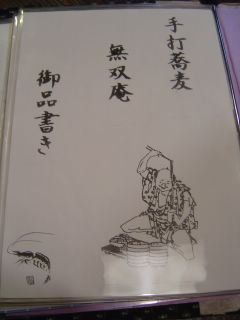 手打蕎麦
無双庵
御品書き